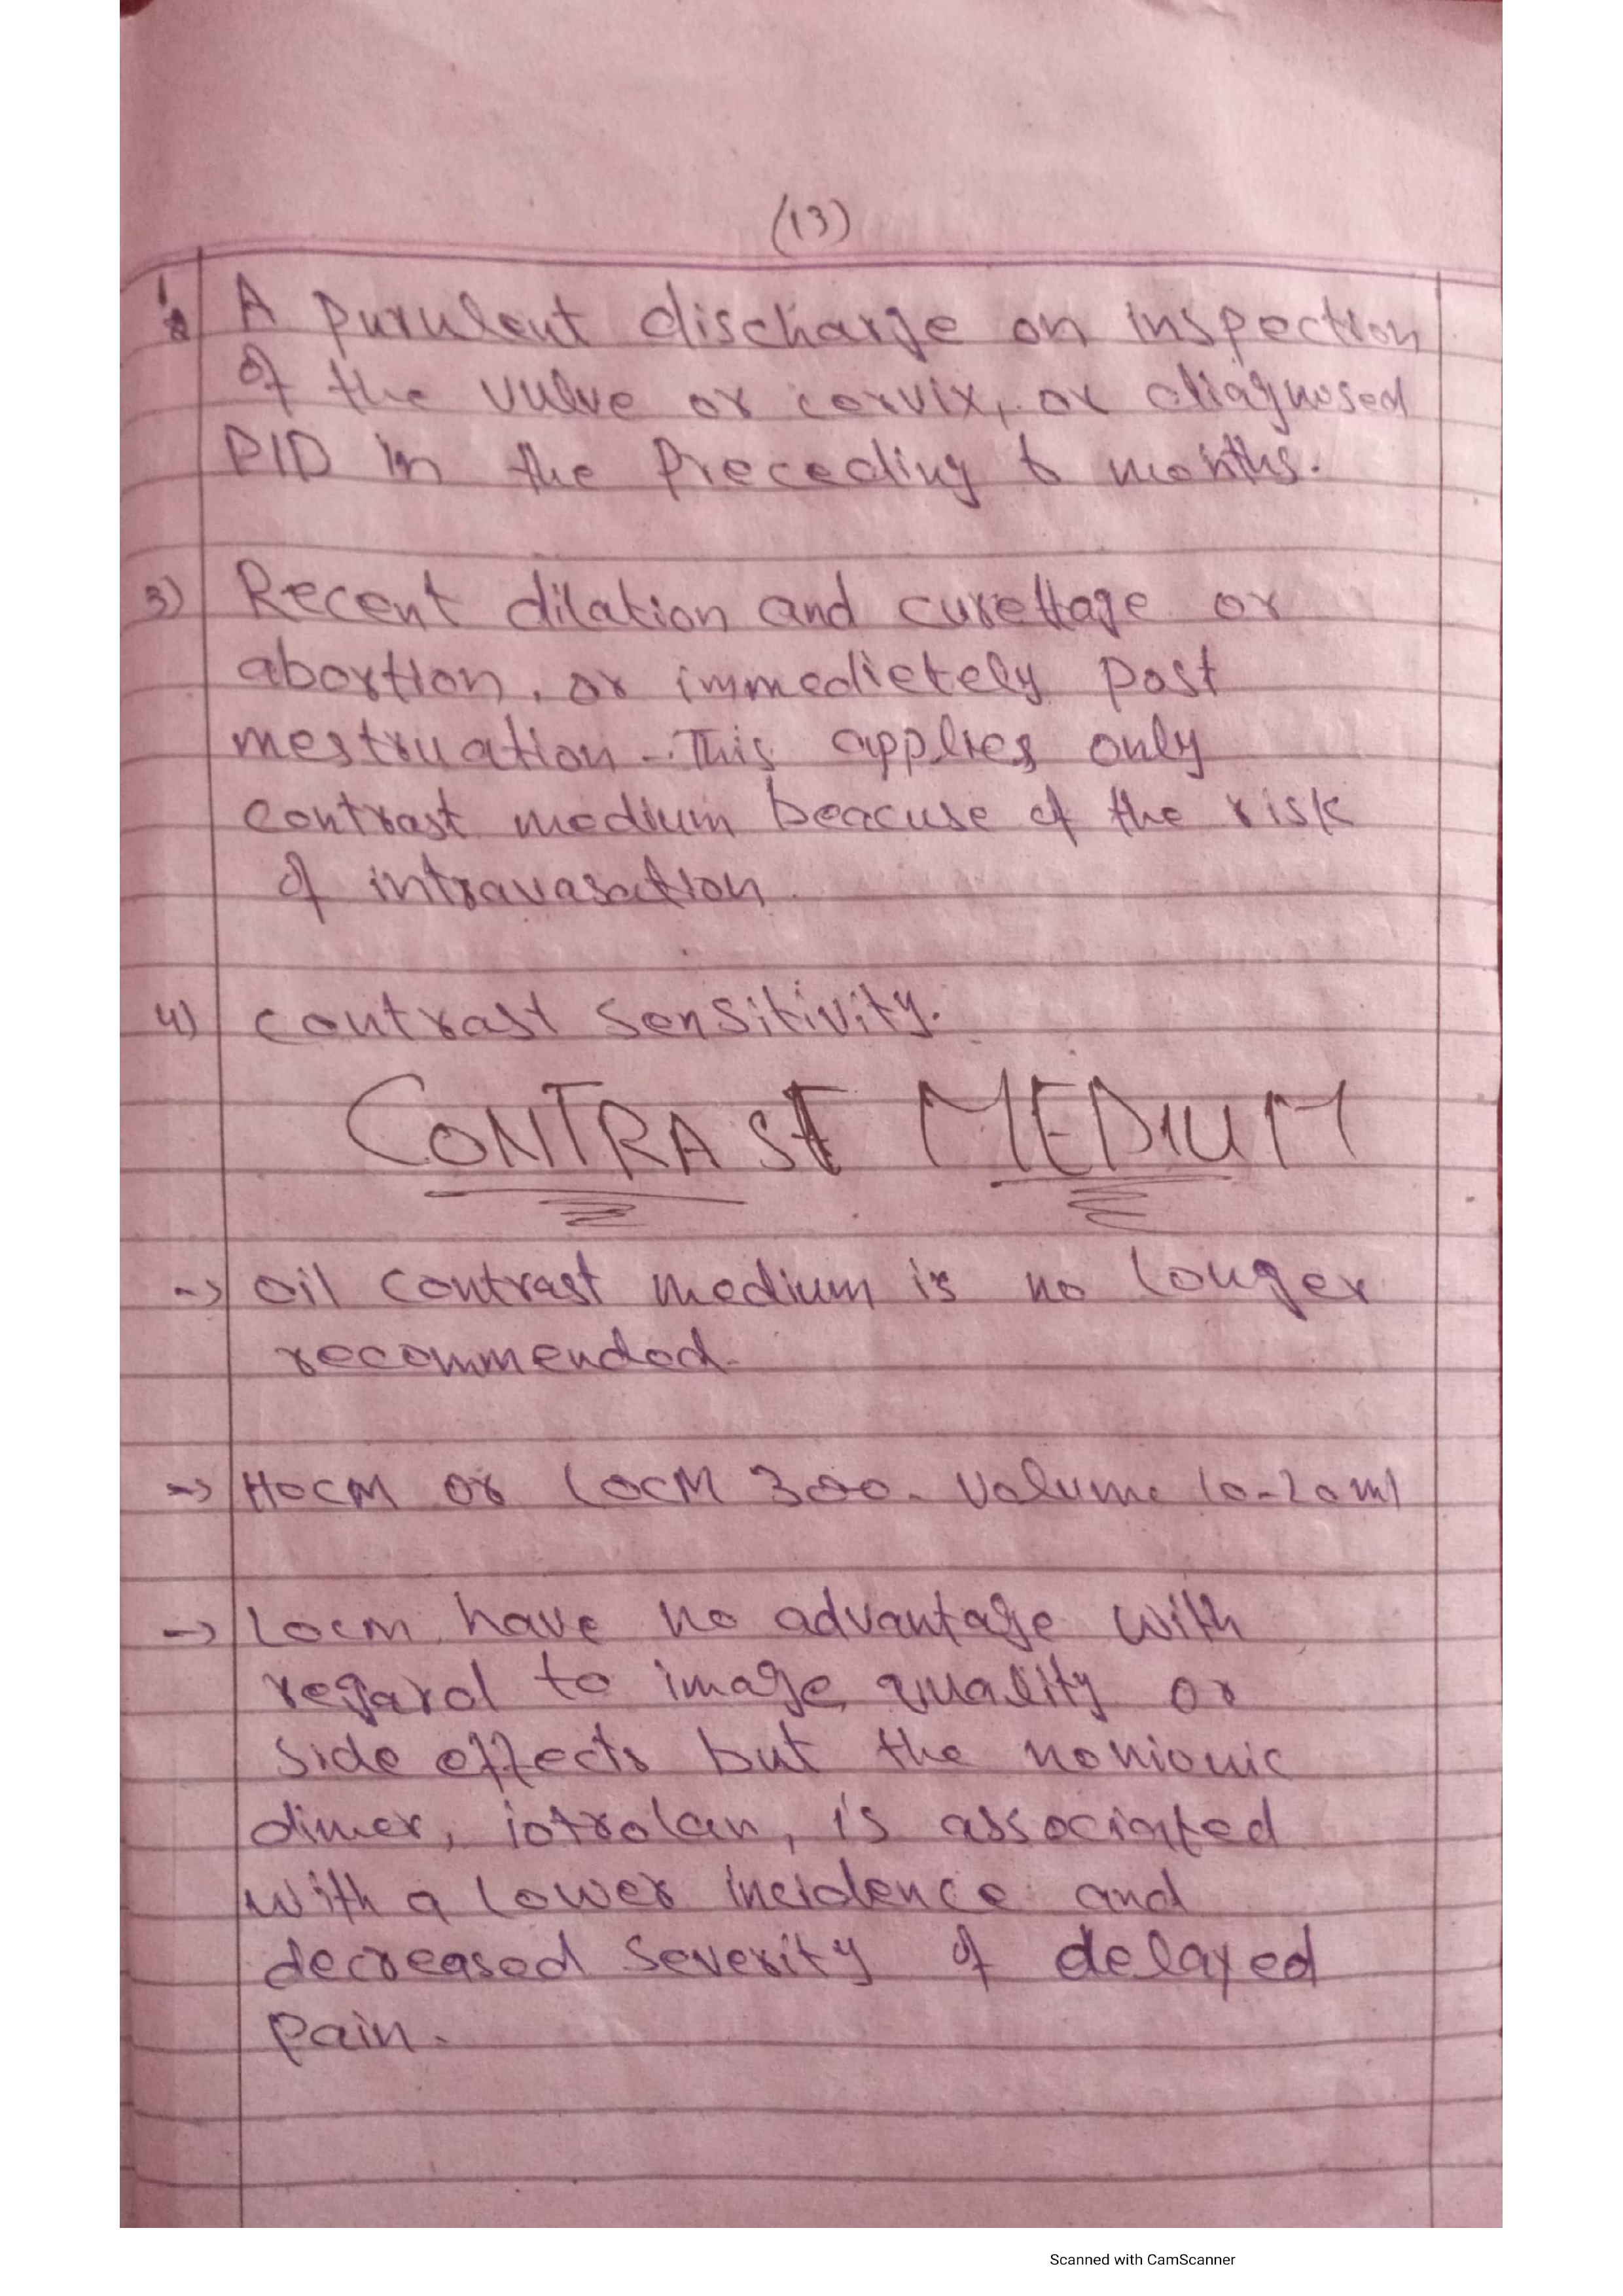 (13)
A purulent discharge on inspection
of the vulve or cervix, or diagnosed
PID in the Preceding 6 months.
3) Recent dilation and curettage or
abortion, or immedietely post
mestruation - This applies only
contrast medium beacuse of the risk
of intravasation.
4) contrast sensitivity.
CONTRAST MEDIUM
-> oil contrast medium is no longer
recommended.
-> HOCM or LOCM 300. Volume 10-20ml
-> LOCM have no advantage with
regard to image quality or
side effects but the nonionic
dimer, iotrolan, is associated
with a lower incidence and
decreased severity of delayed
pain.
Scanned with CamScanner